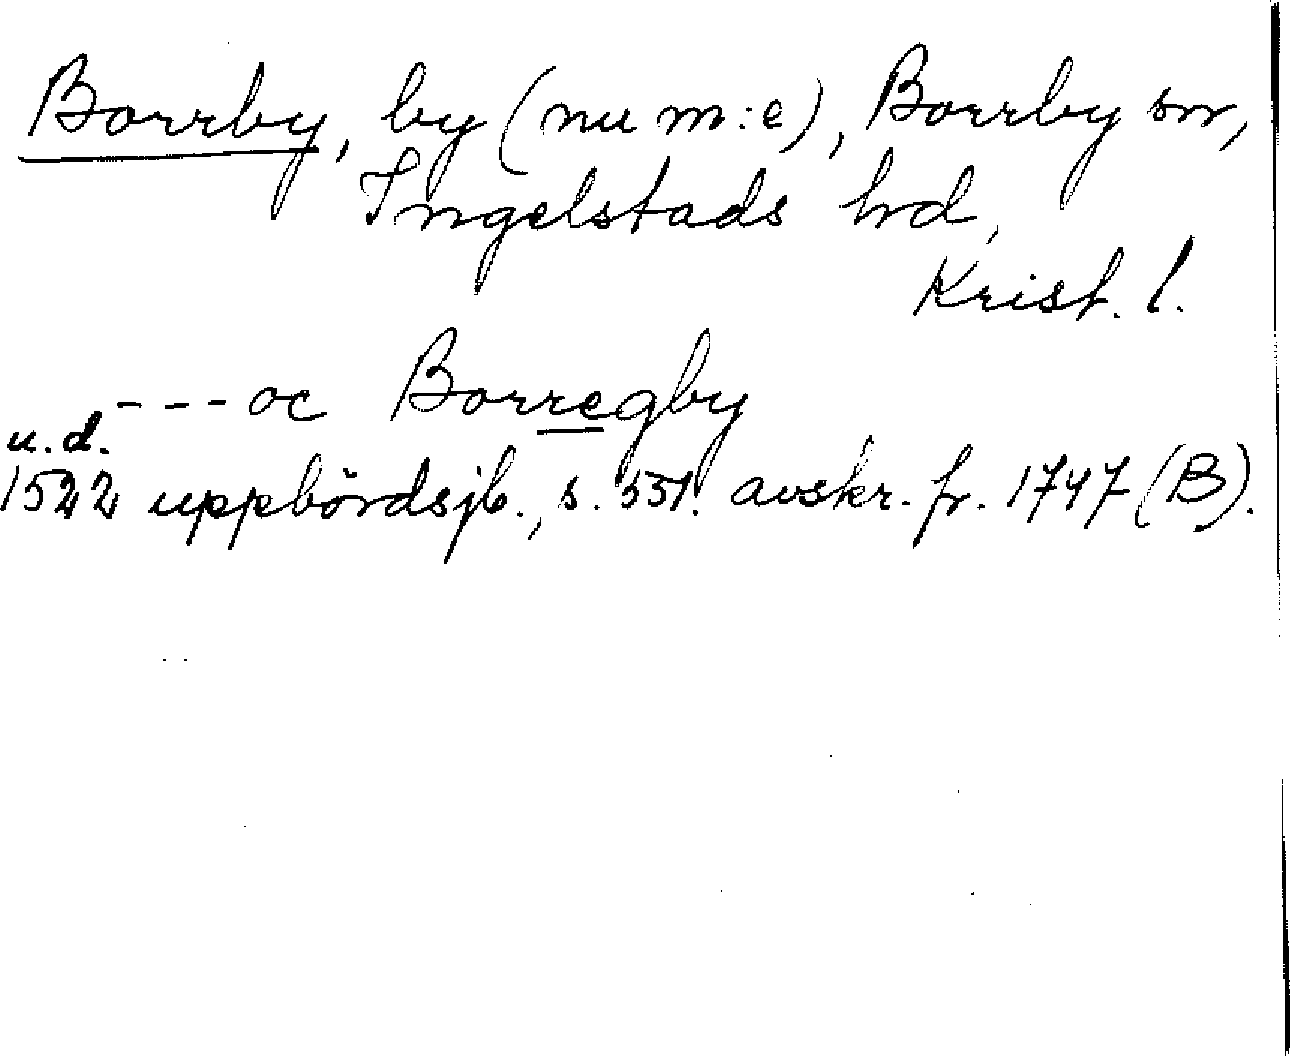 Borrby, by (nu m:e), Borrby sn,
Ingelstads hd,
Krist. l.
--- oc Borregby
u.d.
1522 uppbördsjb., s. 551. avskr. fr. 1747 (B).